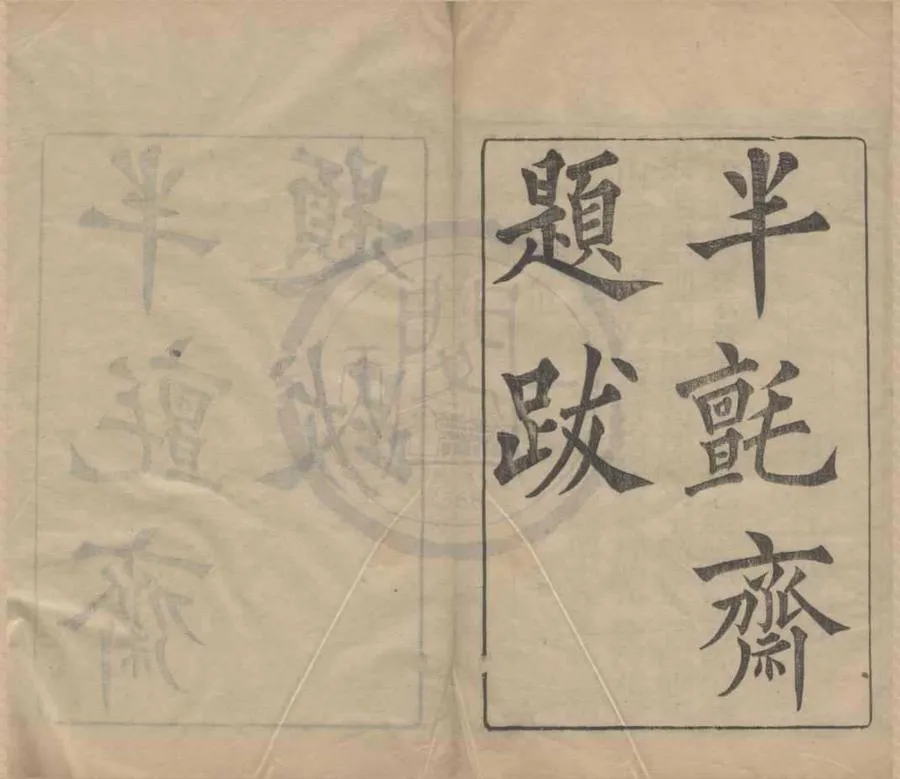 半氈齋
題跋